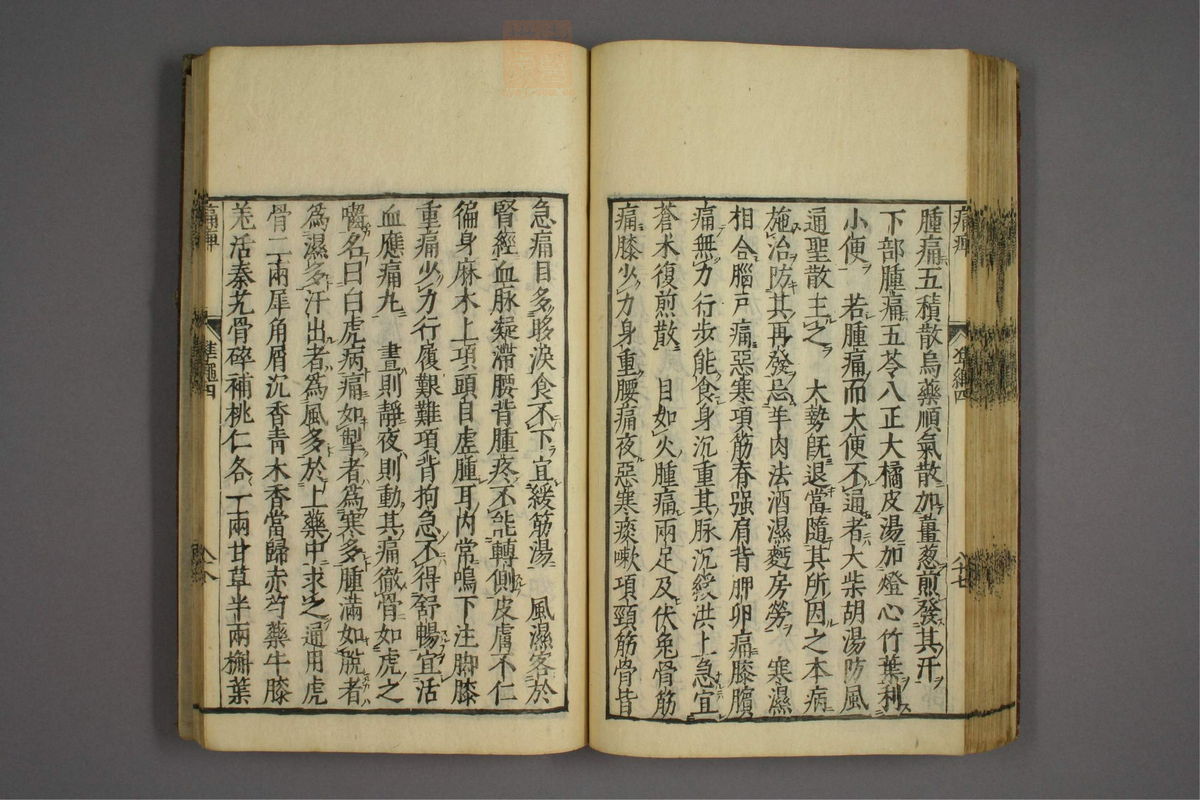 腫痛五積散烏藥順氣散加薑葱煎發其汗
下部腫痛五苓八正大橘皮湯加燈心竹葉利
小便　若腫痛而大便不通者大柴胡湯防風
通聖散主之　大勢既退當隨其所因之本病
施治防其再發忌羊肉法酒濕麪房勞　寒濕
相合腦戸痛惡寒項筋脊强肩背胛卵痛膝臏
痛無力行步能食身沉重其脉沉緩洪上急宜
蒼朮復煎散　目如火腫痛兩足及伏兔骨筋
痛膝少力身重腰痛夜惡寒痰嗽項頸筋骨皆
急痛目多眵淚食不下宜緩筋湯　風濕客於
腎經血脉凝滯腰背腫疼不能轉側皮膚不仁
徧身麻木上項頭目虚腫耳内常鳴下注脚膝
重痛少力行履艱難項背拘急不得舒暢宜活
血應痛丸　晝則靜夜則動其痛徹骨如虎之
囓名曰白虎病痛如掣者為寒多腫滿如脱者
為濕多汗出者為風多於上藥中求之通用虎
骨二兩犀角屑沉香青木香當歸赤芍藥牛膝
羌活秦艽骨碎補桃仁各一兩甘草半兩槲葉